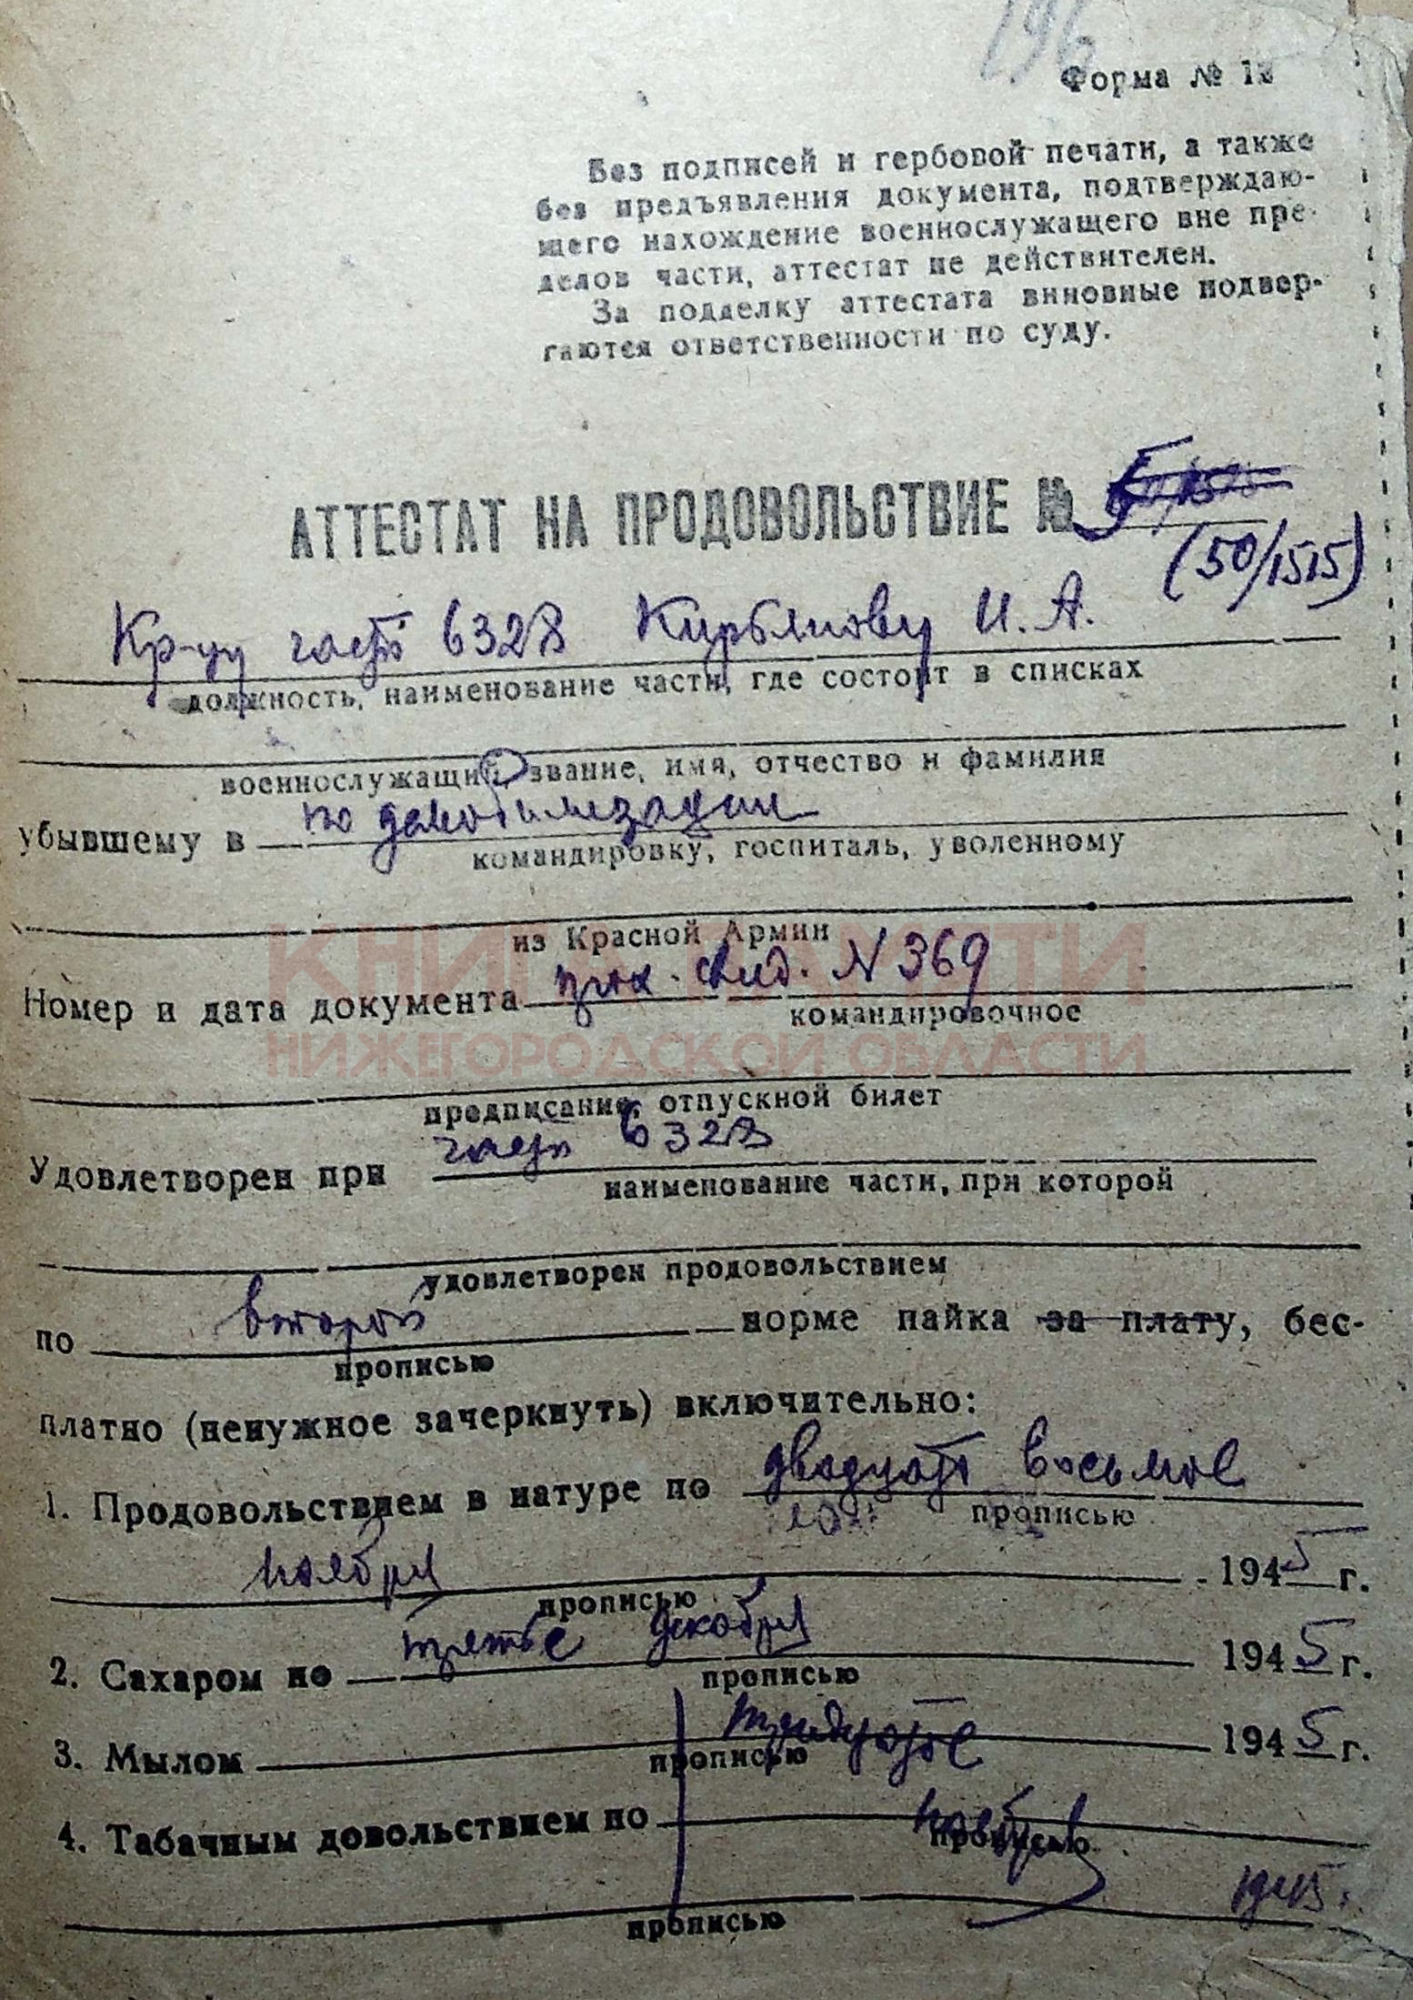 196
Форма № 12
Без подписей и гербовой печати, а также
без предъявления документа, подтверждаю-
щего нахождение военнослужащего вне пре-
делов части, аттестат не действителен.
За подделку аттестата виновные подвер-
гаются ответственности по суду.
АТТЕСТАТ НА ПРОДОВОЛЬСТВИЕ №
(50/1515)
Кр-цу часть 6328 Курбянову И. А.
должность, наименование части, где состоит в списках
военнослужащий, звание, имя, отчество и фамилия
убывшему в по демобилизации
командировку, госпиталь, уволенному
из Красной Армии
КНИГА ПАМЯТИ
Номер и дата документа N 369
командировочное
НИЖЕГОРОДСКОЙ ОБЛАСТИ
предписание, отпускной билет
Удовлетворен при часть 6328
наименование части, при которой
удовлетворен продовольствием
по второй норме пайка за плату, бес-
прописью
платно (ненужное зачеркнуть) включительно:
1. Продовольствием в натуре по двадцать восьмое
прописью
ноября 1945 г.
прописью
2. Сахаром по третье декабря 1945 г.
прописью
3. Мылом тридцатое 1945 г.
прописью
4. Табачным довольствием по ноября
прописью
1945
прописью